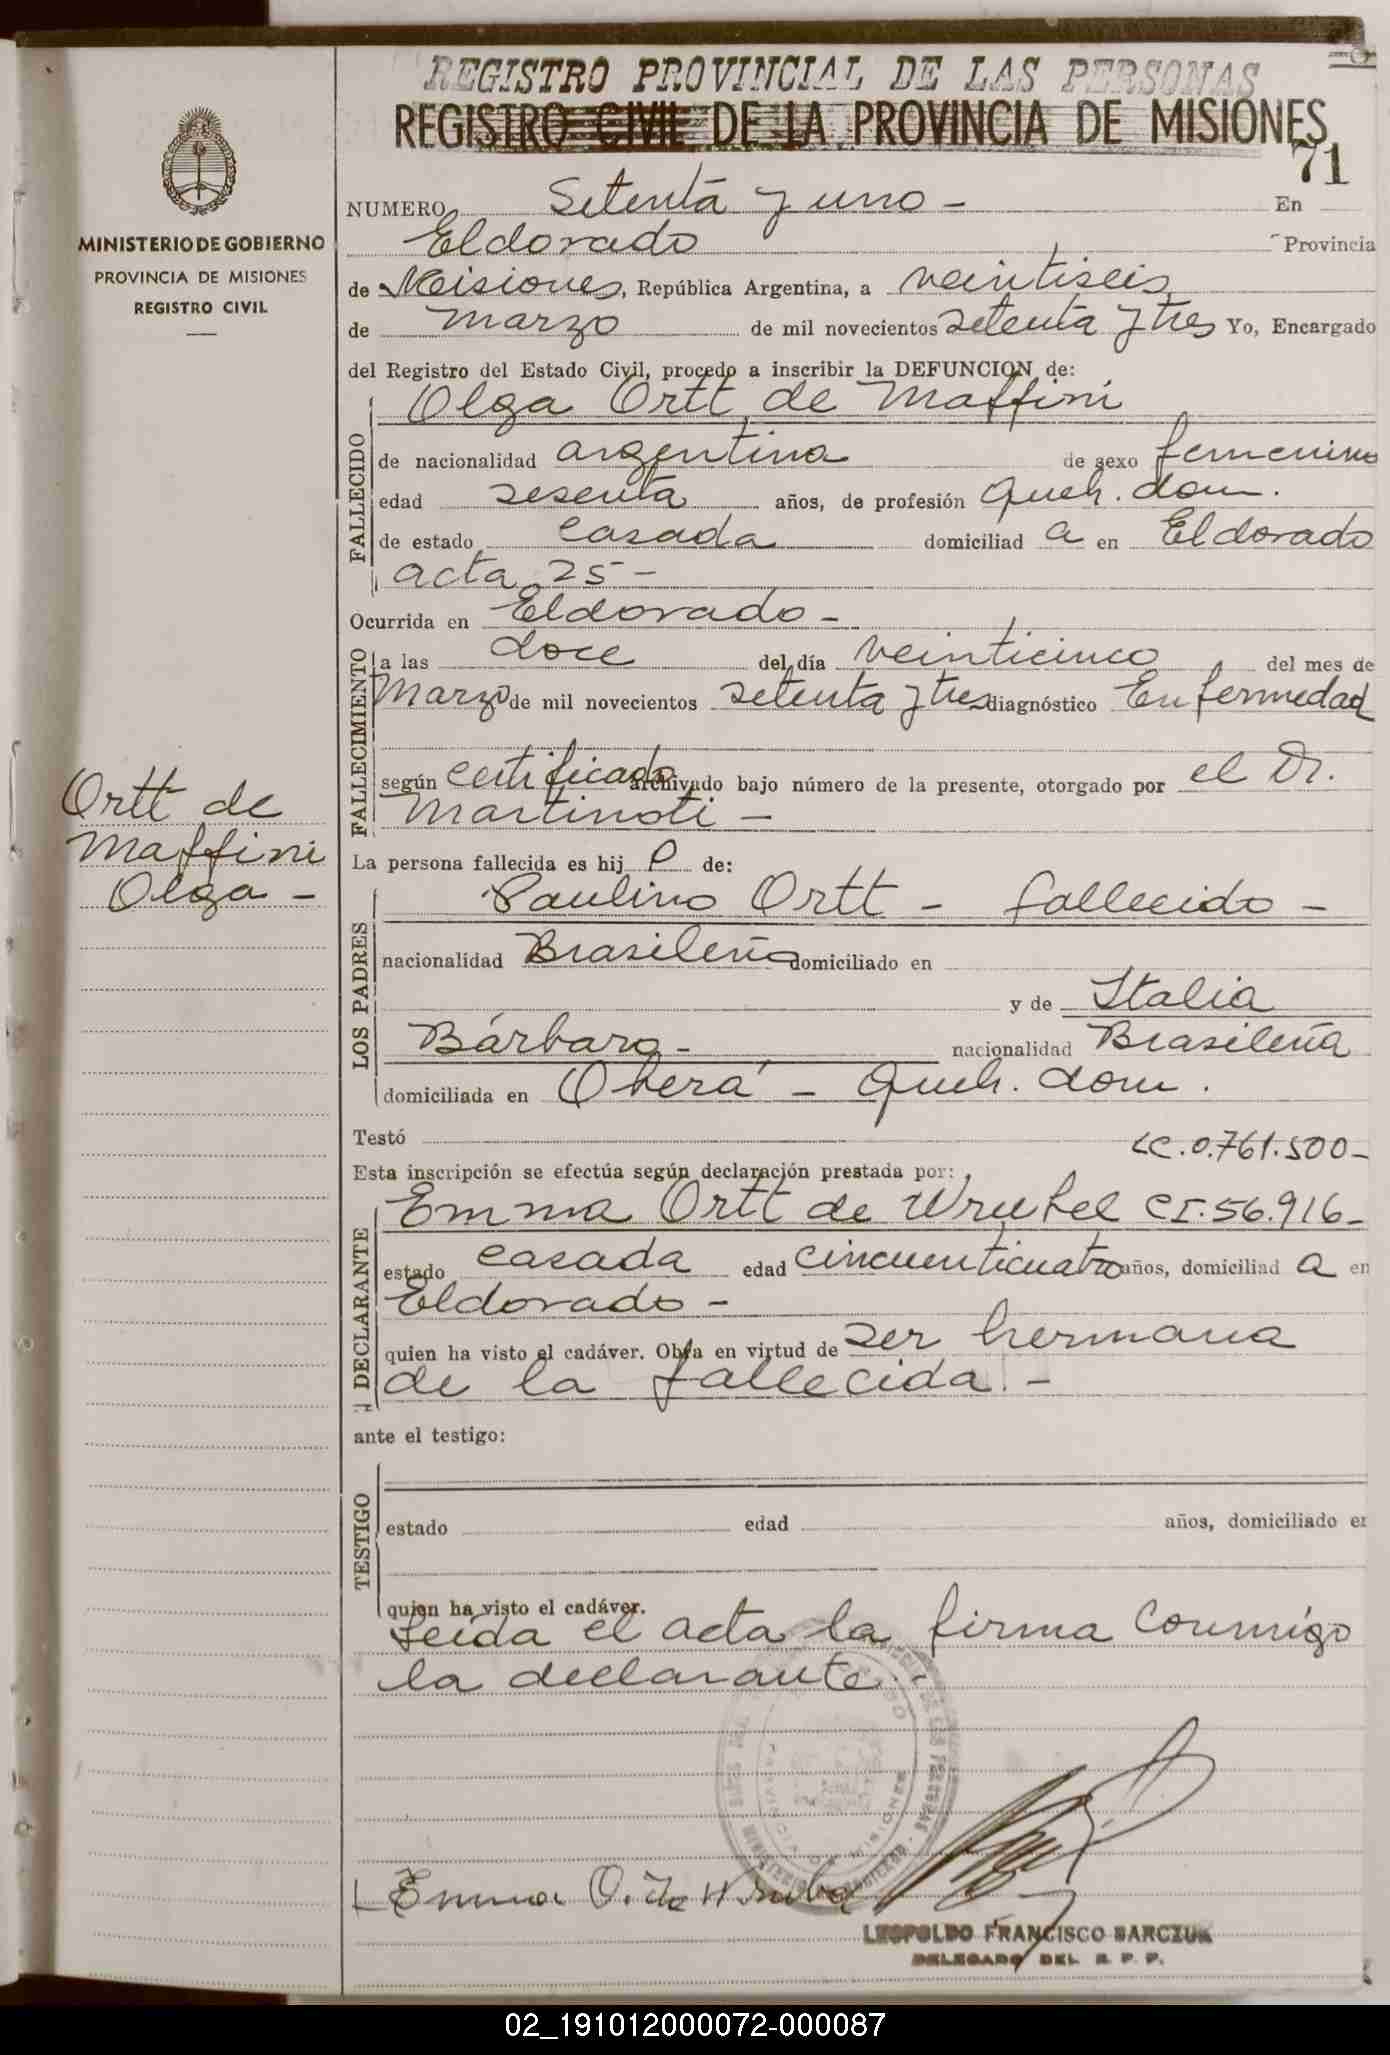 REGISTRO PROVINCIAL DE LAS PERSONAS
REGISTRO CIVIL DE LA PROVINCIA DE MISIONES
71
MINISTERIO DE GOBIERNO
PROVINCIA DE MISIONES
REGISTRO CIVIL
NUMERO Setenta y uno - En
Eldorado Provincia
de Misiones, República Argentina, a veintiseis
de marzo de mil novecientos setenta y tres Yo, Encargado
del Registro del Estado Civil, procedo a inscribir la DEFUNCION de:
FALLECIDO
Olga Ortt de Maffini
de nacionalidad argentina de sexo femenino
edad sesenta años, de profesión Queh. dom.
de estado casada domiciliad a en Eldorado
acta 25 -
Ocurrida en Eldorado -
FALLECIMIENTO
a las doce del día veinticinco del mes de
Marzo de mil novecientos setenta y tres diagnóstico Enfermedad
según certificado archivado bajo número de la presente, otorgado por el Dr.
Martinoti -
Ortt de
Maffini
Olga -
La persona fallecida es hij de:
LOS PADRES
Paulino Ortt - fallecido -
nacionalidad Brasileña domiciliado en
y de Italia
Bárbaro - nacionalidad Brasileña
domiciliada en Oberá - Queh. dom.
Testó
LC. 0.761.500 -
Esta inscripción se efectúa según declaración prestada por:
DECLARANTE
Emma Ortt de Wrubel CI. 56.916 -
estado casada edad cincuenticuatro años, domiciliad a en
Eldorado -
quien ha visto el cadáver. Obra en virtud de ser hermana
de la fallecida. -
ante el testigo:
TESTIGO
estado edad años, domiciliado en
quien ha visto el cadáver.
Leída el acta la firma conmigo
la declarante. -
Emma O. de Wrubel
LEOPOLDO FRANCISCO BARCZUK
DELEGADO DEL R. P. P.
02_191012000072-000087